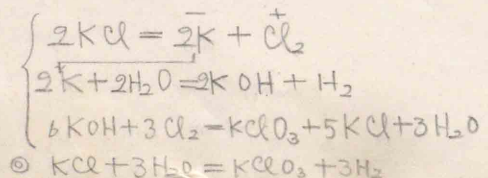 2KCl = 2K̄ + C̟l₂
2K + 2H₂O = 2KOH + H₂
6KOH + 3Cl₂ = KClO₃ + 5KCl + 3H₂O
◎ KCl + 3H₂O = KClO₃ + 3H₂